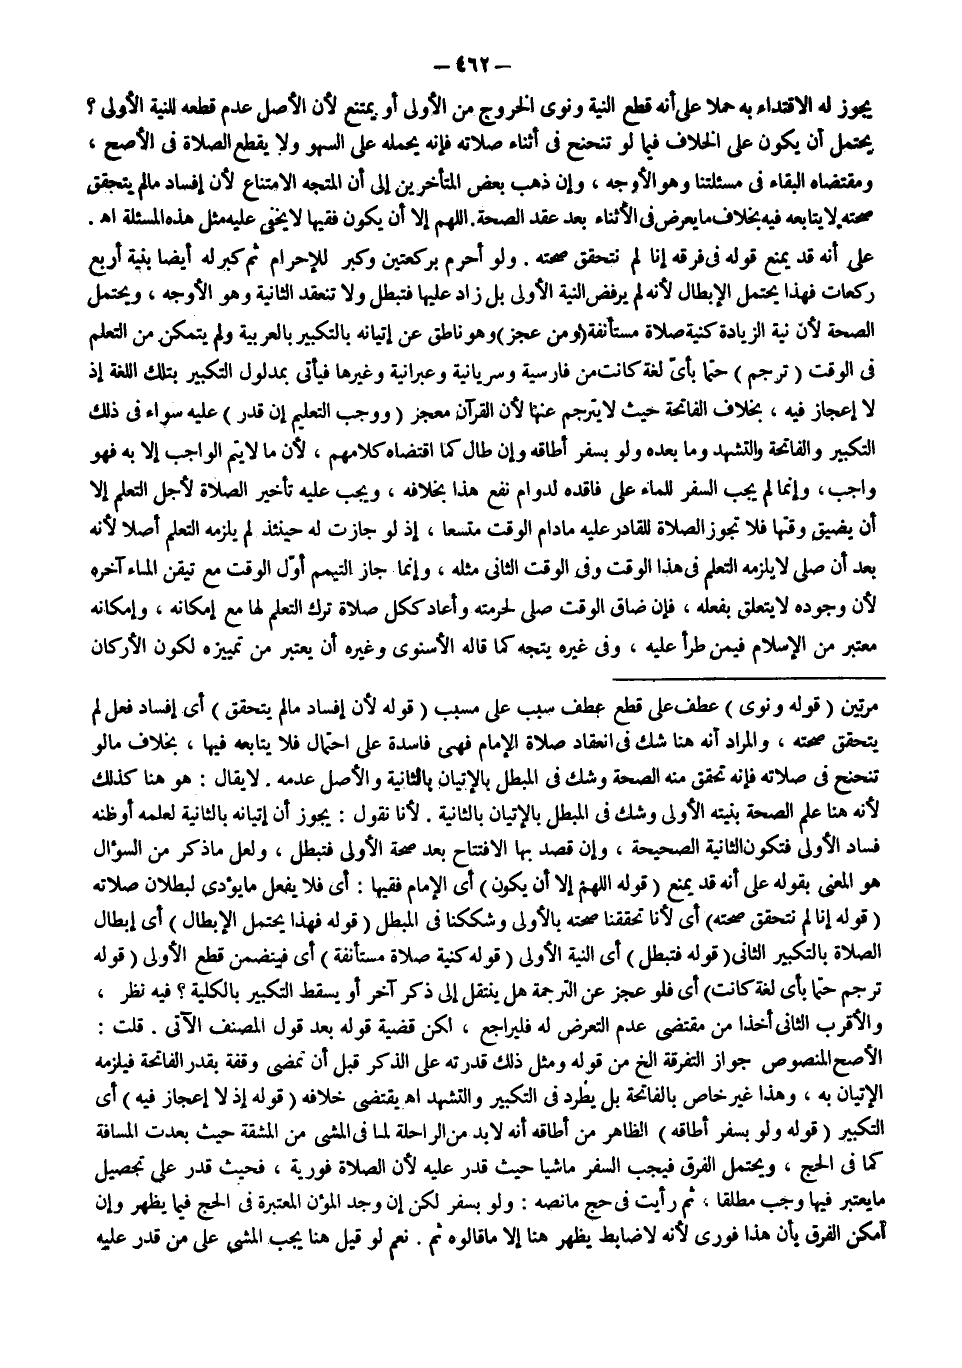 – ٤٦٢ –
يجوز له الاقتداء به حملا على أنه قطع النية ونوى الخروج من الأولى أو يمتنع لأن الأصل عدم قطعه للنية الأولى ؟
يحتمل أن يكون على الخلاف فيما لو تنحنح فى أثناء صلاته فإنه يحمله على السهو ولا يقطع الصلاة فى الأصح ،
ومقتضاه البقاء فى مسئلتنا وهو الأوجه ، وإن ذهب بعض المتأخرين إلى أن المتجه الامتناع لأن إفساد مالم يتحقق
صحته لا يتابعه فيه بخلاف ما يعرض فى الأثناء بعد عقد الصحة . اللهم إلا أن يكون فقيها لا يخفى عليه مثل هذه المسئلة اهـ .
على أنه قد يمنع قوله فى فرقه إنا لم نتحقق صحته . ولو أحرم بركعتين وكبر للإحرام ثم كبر له أيضا بنية أربع
ركعات فهذا يحتمل الإبطال لأنه لم يرفض النية الأولى بل زاد عليها فتبطل ولا تنعقد الثانية وهو الأوجه ، ويحتمل
الصحة لأن نية الزيادة كنية صلاة مستأنفة (ومن عجز) وهو ناطق عن إتيانه بالتكبير بالعربية ولم يتمكن من التعلم
فى الوقت ( ترجم ) حتما بأىّ لغة كانت من فارسية وسريانية وعبرانية وغيرها فيأتى بمدلول التكبير بتلك اللغة إذ
لا إعجاز فيه ، بخلاف الفاتحة حيث لا يترجم عنها لأن القرآن معجز ( ووجب التعليم إن قدر ) عليه سواء فى ذلك
التكبير والفاتحة والتشهد وما بعده ولو بسفر أطاقه وإن طال كما اقتضاه كلامهم ، لأن ما لايتم الواجب إلا به فهو
واجب ، وإنما لم يجب السفر للماء على فاقده لدوام نفع هذا بخلافه ، ويجب عليه تأخير الصلاة لأجل التعلم إلا
أن يضيق وقتها فلا تجوز الصلاة للقادر عليه مادام الوقت متسعا ، إذ لو جازت له حينئذ لم يلزمه التعلم أصلا لأنه
بعد أن صلى لا يلزمه التعلم فى هذا الوقت وفى الوقت الثانى مثله ، وإنما جاز التيمم أوّل الوقت مع تيقن الماء آخره
لأن وجوده لا يتعلق بفعله ، فإن ضاق الوقت صلى لحرمته وأعاد كل صلاة ترك التعلم لها مع إمكانه ، وإمكانه
معتبر من الإسلام فيمن طرأ عليه ، وفى غيره يتجه كما قاله الأسنوى وغيره أن يعتبر من تمييزه لكون الأركان
مرتين ( قوله ونوى ) عطف على قطع عطف سبب على مسبب ( قوله لأن إفساد مالم يتحقق ) أى إفساد فعل لم
يتحقق صحته ، والمراد أنه هنا شك فى انعقاد صلاة الإمام فهى فاسدة على احتمال فلا يتابعه فيها ، بخلاف مالو
تنحنح فى صلاته فإنه تحقق منه الصحة وشك فى المبطل بالإتيان بالثانية والأصل عدمه . لايقال : هو هنا كذلك
لأنه هنا علم الصحة بنيته الأولى وشك فى المبطل بالإتيان بالثانية . لأنا نقول : يجوز أن إتيانه بالثانية لعلمه أو ظنه
فساد الأولى فتكون الثانية الصحيحة ، وإن قصد بها الافتتاح بعد صحة الأولى فتبطل ، ولعل ماذكر من السؤال
هو المعنى بقوله على أنه قد يمنع ( قوله اللهمّ إلا أن يكون ) أى الإمام فقيها : أى فلا يفعل مايؤدى لبطلان صلاته
( قوله إنا لم نتحقق صحته ) أى لأنا تحققنا صحته بالأولى وشككنا فى المبطل ( قوله فهذا يحتمل الإبطال ) أى إبطال
الصلاة بالتكبير الثانى ( قوله فتبطل ) أى النية الأولى ( قوله كنية صلاة مستأنفة ) أى فيتضمن قطع الأولى ( قوله
ترجم حتما بأى لغة كانت ) أى فلو عجز عن الترجمة هل ينتقل إلى ذكر آخر أو يسقط التكبير بالكلية ؟ فيه نظر ،
والأقرب الثانى أخذا من مقتضى عدم التعرض له فليراجع ، لكن قضية قوله بعد قول المصنف الآتى . قلت :
الأصح المنصوص جواز التفرقة الخ من قوله ومثل ذلك قدرته على الذكر قبل أن تمضى وقفة بقدر الفاتحة فيلزمه
الإتيان به ، وهذا غير خاص بالفاتحة بل يطرد فى التكبير والتشهد اهـ يقتضى خلافه ( قوله إذ لا إعجاز فيه ) أى
التكبير ( قوله ولو بسفر أطاقه ) الظاهر من أطاقه أنه لابد من الراحلة لما فى المشى من المشقة حيث بعدت المسافة
كما فى الحج ، ويحتمل الفرق فيجب السفر ماشيا حيث قدر عليه لأن الصلاة فورية ، فحيث قدر على تحصيل
مايعتبر فيها وجب مطلقا ، ثم رأيت فى حج مانصه : ولو بسفر لكن إن وجد المؤن المعتبرة فى الحج فيما يظهر وإن
أمكن الفرق بأن هذا فورى لأنه لاضابط يظهر هنا إلا ماقالوه ثم . نعم لو قيل هنا يجب المشى على من قدر عليه